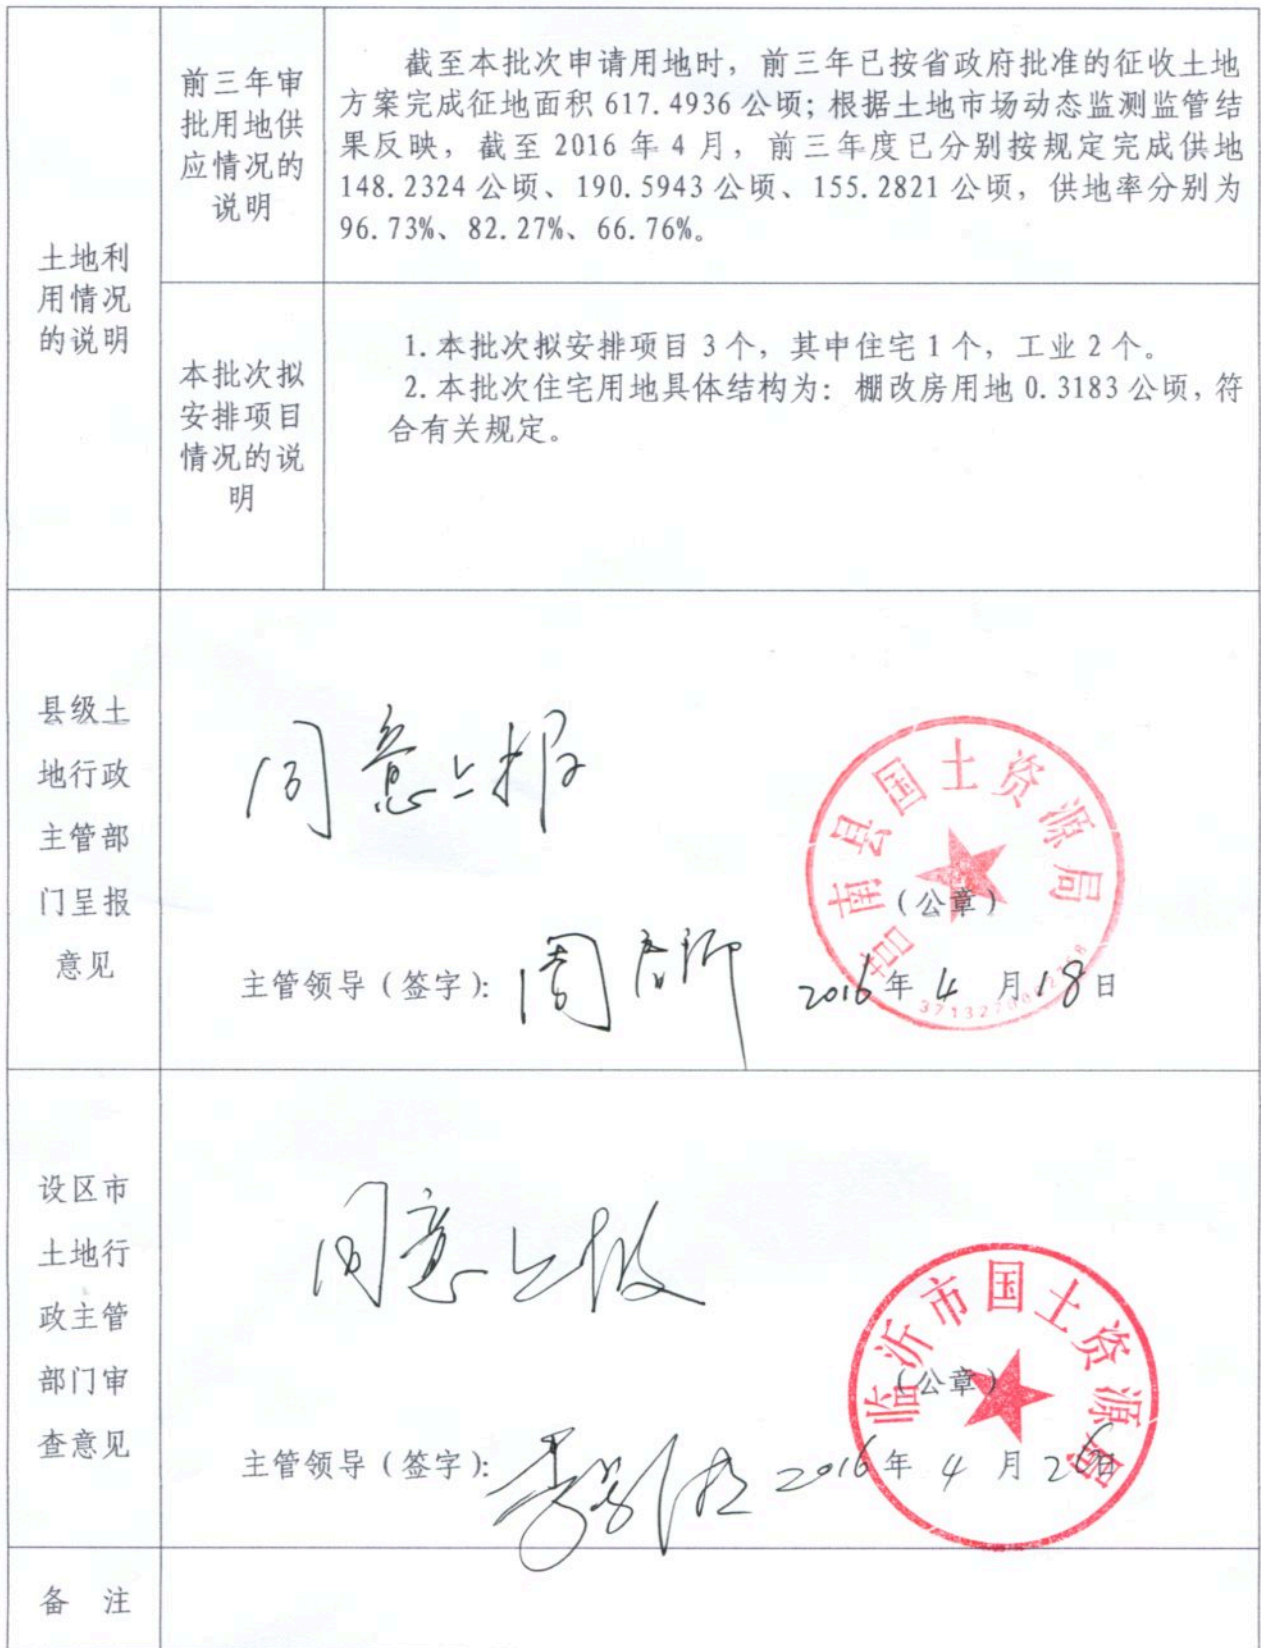 土地利
用情况
的说明
前三年审
批用地供
应情况的
说明
截至本批次申请用地时，前三年已按省政府批准的征收土地
方案完成征地面积 617.4936 公顷；根据土地市场动态监测监管结
果反映，截至 2016 年 4 月，前三年度已分别按规定完成供地
148.2324 公顷、190.5943 公顷、155.2821 公顷，供地率分别为
96.73%、82.27%、66.76%。
本批次拟
安排项目
情况的说
明
1.本批次拟安排项目 3 个，其中住宅 1 个，工业 2 个。
2.本批次住宅用地具体结构为：棚改房用地 0.3183 公顷，符
合有关规定。
县级土
地行政
主管部
门呈报
意见
同意上报
莒南县国土资源局
（公章）
主管领导（签字）：周
2016年 4 月 18日
设区市
土地行
政主管
部门审
查意见
同意上报
临沂市国土资源局
（公章）
主管领导（签字）：
2016年 4 月 26日
备 注